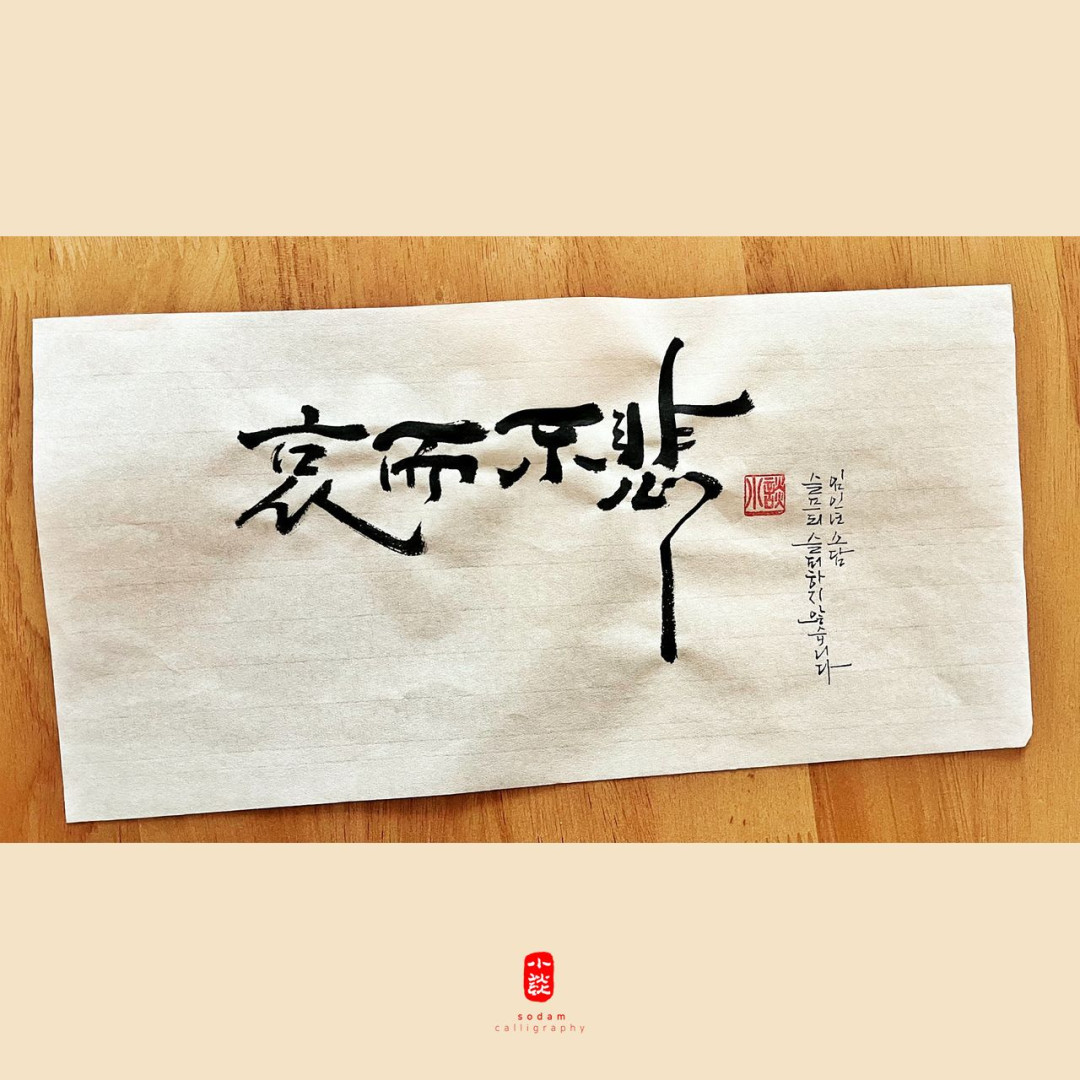 哀而不悲
小談
슬프되 슬퍼하지 않습니다
임인년 소담
小談
sodam
calligraphy